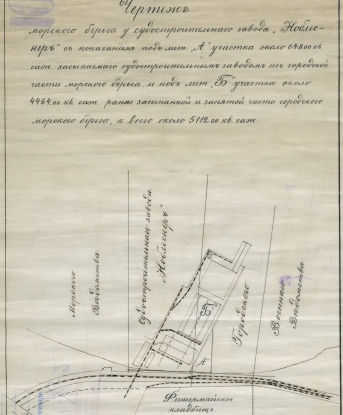 Чертежъ
морского берега у судостроительнаго завода „Ноблес-
неръ" съ показаніемъ подъ лит. „А" участка около 648.00 кв.
саж. засыпаемаго судостроительнымъ заводомъ изъ городской
части морского берега и подъ лит. „Б" участка около
4464.00 кв. саж. ранѣе засыпанной и занятой части городского
морского берега, а всего около 5112.00 кв. саж.
Морского
Вѣдомства
Судостроительнаго завода
„Ноблеснеръ"
Городского
Военнаго
Вѣдомства
Фишермайское
кладбище